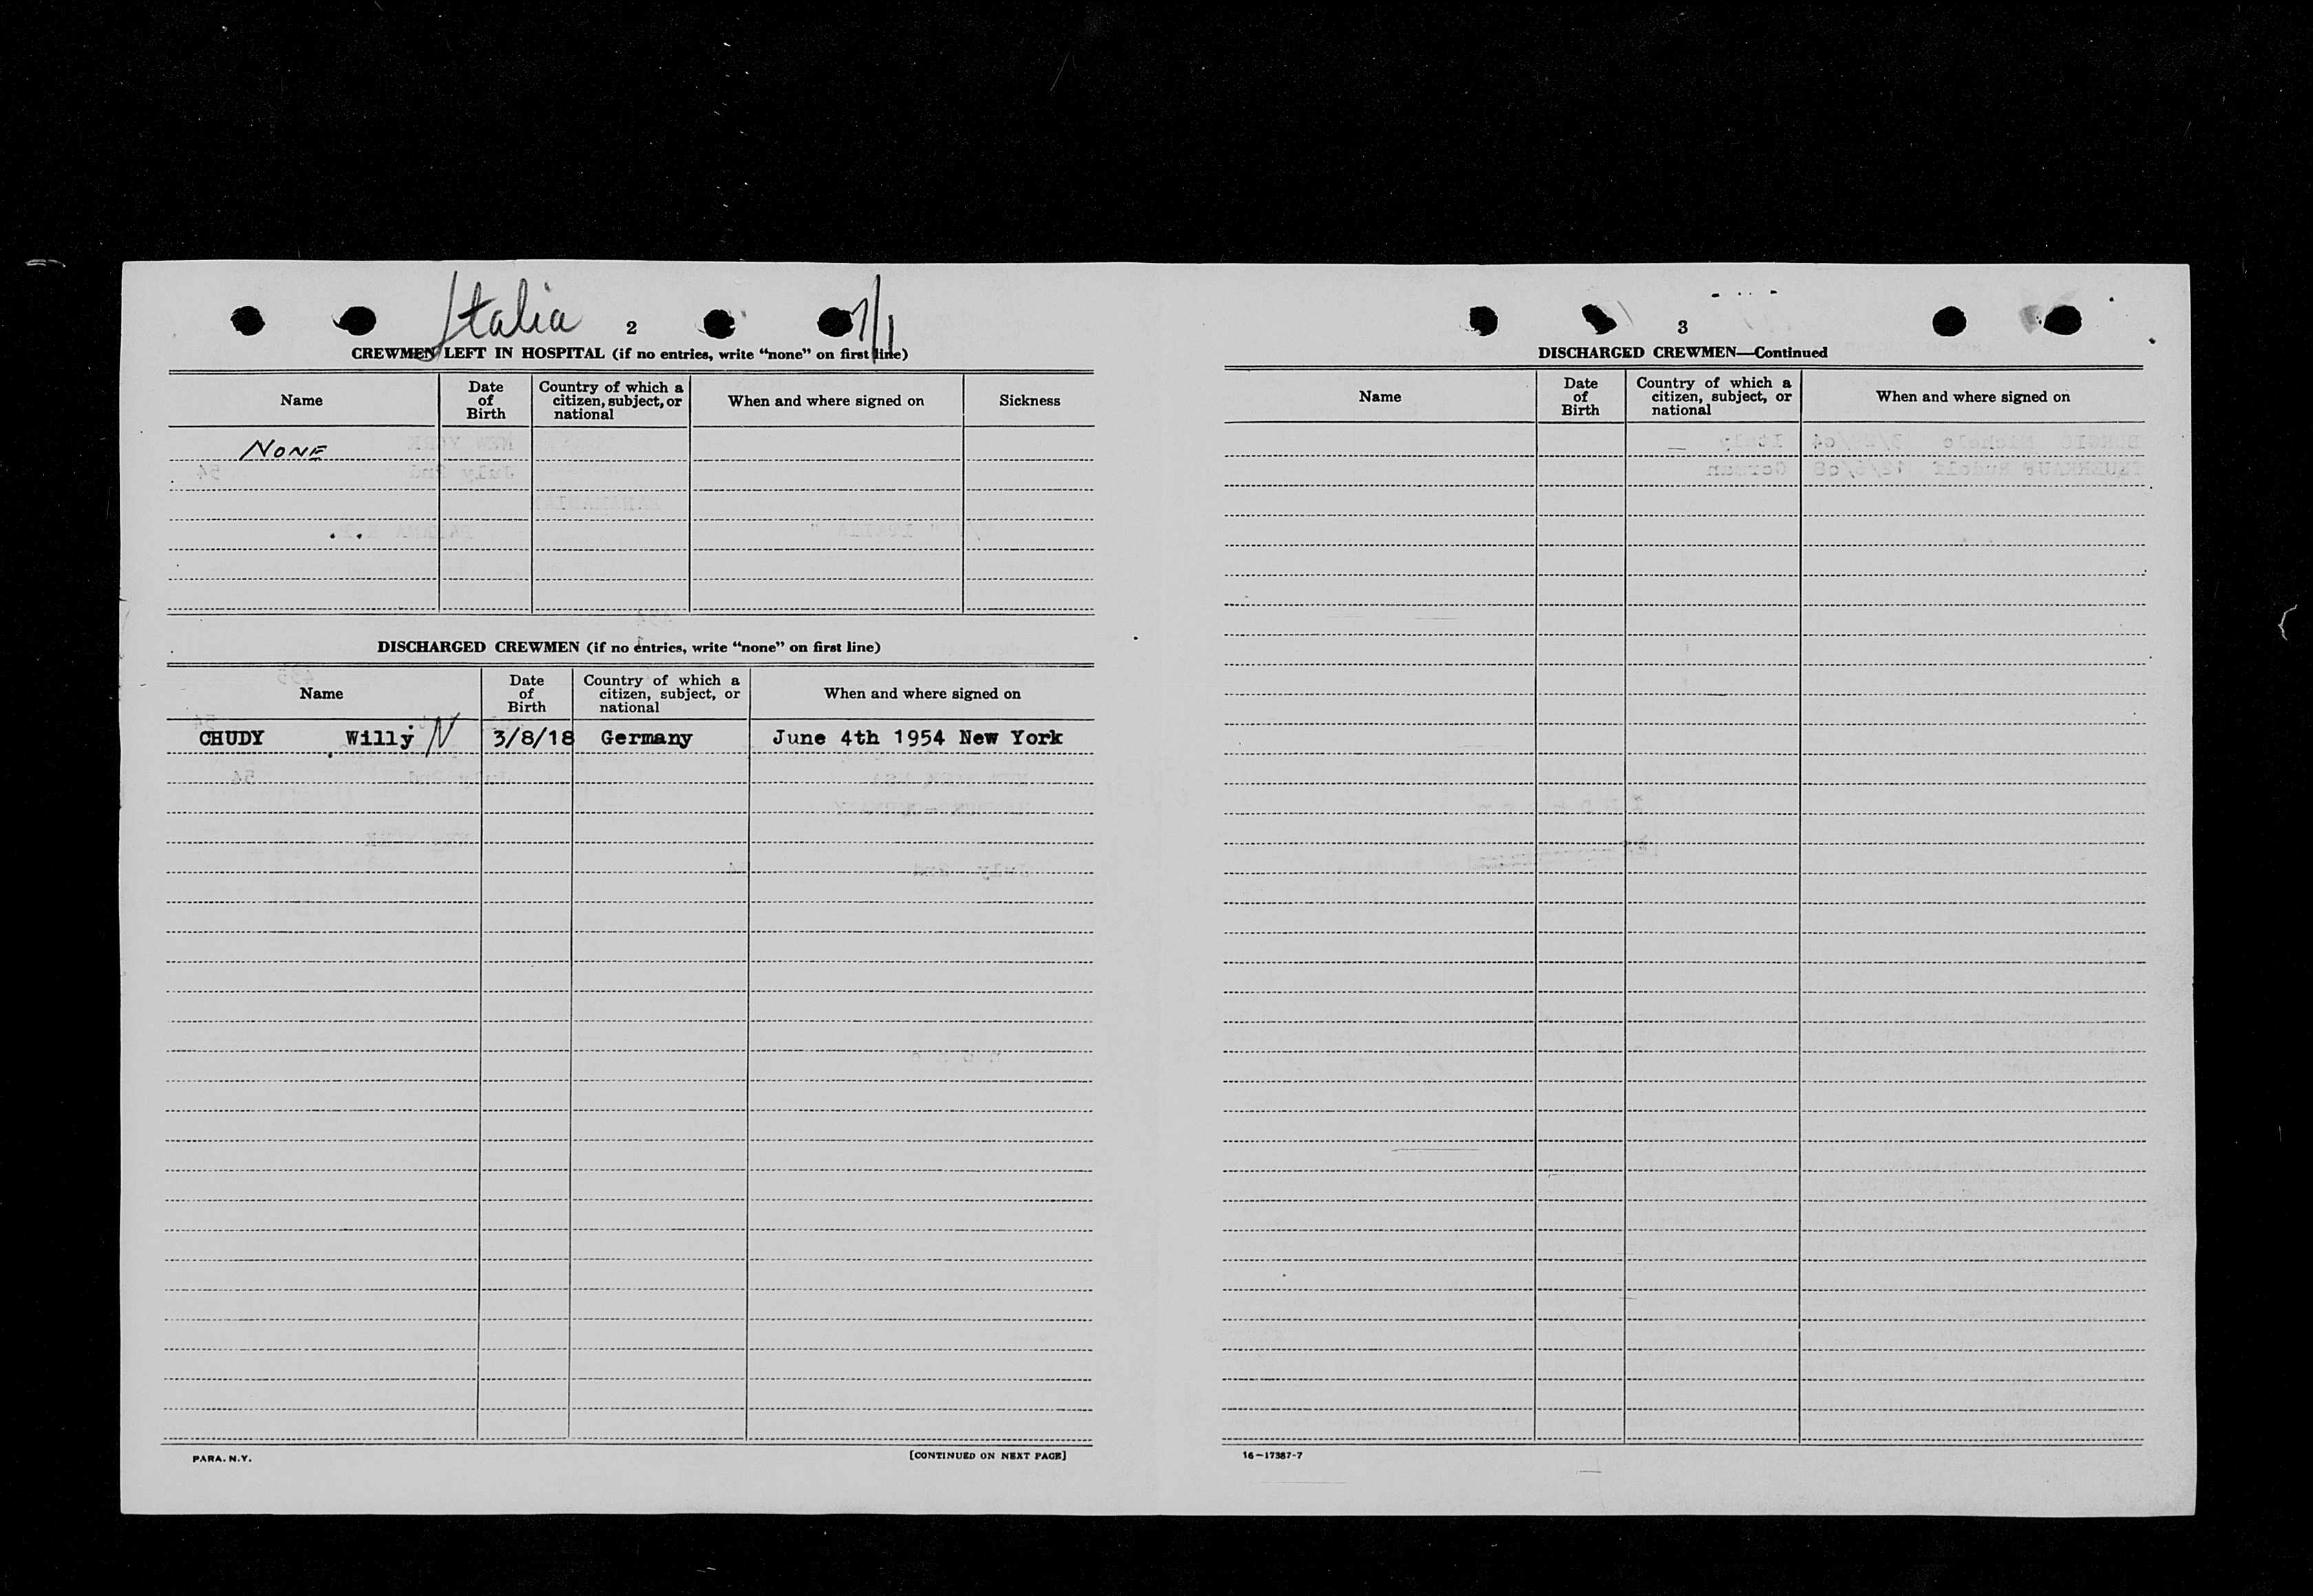 Italia
2
7/1
CREWMEN LEFT IN HOSPITAL (if no entries, write “none” on first line)
Name
Date of Birth
Country of which a citizen, subject, or national
When and where signed on
Sickness
NONE
DISCHARGED CREWMEN (if no entries, write “none” on first line)
Name
Date of Birth
Country of which a citizen, subject, or national
When and where signed on
CHUDY Willy N 3/8/18 Germany June 4th 1954 New York
PARA. N.Y.
[CONTINUED ON NEXT PAGE]
3
DISCHARGED CREWMEN—Continued
Name
Date of Birth
Country of which a citizen, subject, or national
When and where signed on
16—17387-7